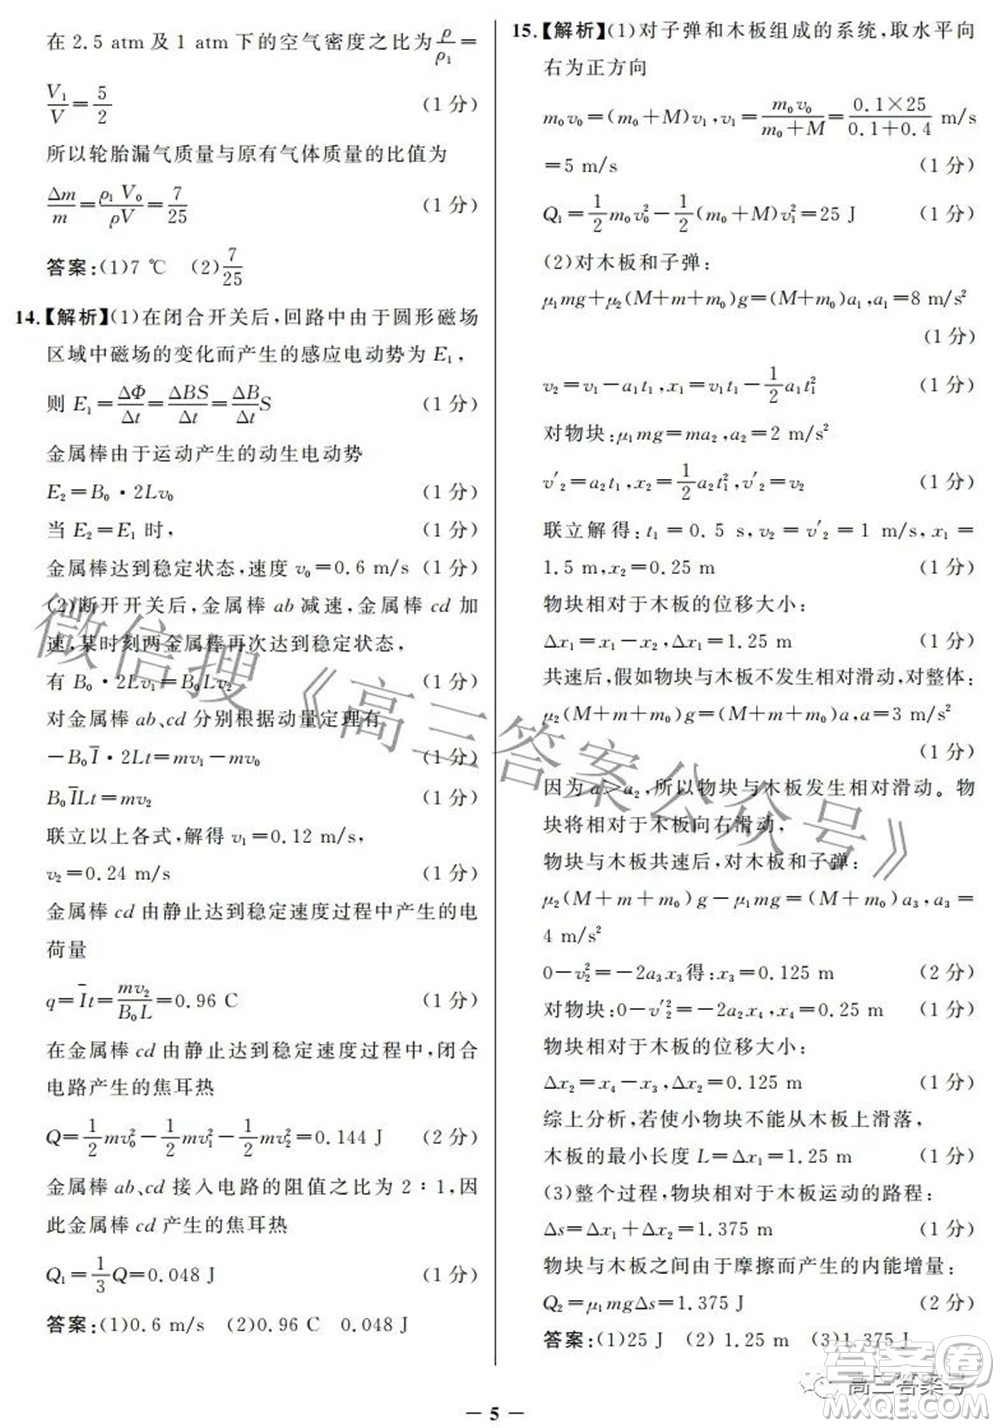 在 2.5 atm 及 1 atm 下的空气密度之比为 ρ/ρ₁ =
V₁/V = 5/2 (1 分)
所以轮胎漏气质量与原有气体质量的比值为
Δm/m = ρ₁V₀/ρV = 7/25 (1 分)
答案:(1)7 ℃ (2)7/25
14.【解析】(1)在闭合开关后,回路中由于圆形磁场
区域中磁场的变化而产生的感应电动势为 E₁,
则 E₁ = ΔΦ/Δt = ΔBS/Δt = ΔB/Δt S (1 分)
金属棒由于运动产生的动生电动势
E₂=B₀·2Lv₀ (1 分)
当 E₂=E₁ 时, (1 分)
金属棒达到稳定状态,速度 v₀=0.6 m/s (1 分)
(2)断开开关后,金属棒 ab 减速,金属棒 cd 加
速,某时刻两金属棒再次达到稳定状态,
有 B₀·2Lv₁=B₀Lv₂ (1 分)
对金属棒 ab、cd 分别根据动量定理有
-B₀I̅·2Lt=mv₁-mv₀ (1 分)
B₀I̅Lt=mv₂ (1 分)
联立以上各式,解得 v₁=0.12 m/s,
v₂=0.24 m/s (1 分)
金属棒 cd 由静止达到稳定速度过程中产生的电
荷量
q=I̅t=mv₂/B₀L=0.96 C (1 分)
在金属棒 cd 由静止达到稳定速度过程中,闭合
电路产生的焦耳热
Q=1/2 mv₀²-1/2 mv₁²-1/2 mv₂²=0.144 J (2 分)
金属棒 ab、cd 接入电路的阻值之比为 2∶1,因
此金属棒 cd 产生的焦耳热
Q₁=1/3 Q=0.048 J (1 分)
答案:(1)0.6 m/s (2)0.96 C 0.048 J
15.【解析】(1)对子弹和木板组成的系统,取水平向
右为正方向
m₀v₀=(m₀+M)v₁,v₁=m₀v₀/(m₀+M)=(0.1×25)/(0.1+0.4) m/s
=5 m/s (1 分)
Q₁=1/2 m₀v₀²-1/2 (m₀+M)v₁²=25 J (1 分)
(2)对木板和子弹:
μ₁mg+μ₂(M+m+m₀)g=(M+m₀)a₁,a₁=8 m/s²
(1 分)
v₂=v₁-a₁t₁,x₁=v₁t₁-1/2 a₁t₁² (1 分)
对物块:μ₁mg=ma₂,a₂=2 m/s² (1 分)
v′₂=a₂t₁,x₂=1/2 a₂t₁²,v′₂=v₂ (1 分)
联立解得:t₁=0.5 s,v₂=v′₂=1 m/s,x₁=
1.5 m,x₂=0.25 m (1 分)
物块相对于木板的位移大小:
Δx₁=x₁-x₂,Δx₁=1.25 m (1 分)
共速后,假如物块与木板不发生相对滑动,对整体:
μ₂(M+m+m₀)g=(M+m+m₀)a,a=3 m/s²
(1 分)
因为 a>a₂,所以物块与木板发生相对滑动。物
块将相对于木板向右滑动,
物块与木板共速后,对木板和子弹:
μ₂(M+m+m₀)g-μ₁mg=(M+m₀)a₃,a₃=
4 m/s² (1 分)
0-v₂²=-2a₃x₃得:x₃=0.125 m (2 分)
对物块:0-v′₂²=-2a₂x₄,x₄=0.25 m (1 分)
物块相对于木板的位移大小:
Δx₂=x₄-x₃,Δx₂=0.125 m (1 分)
综上分析,若使小物块不能从木板上滑落,
木板的最小长度 L=Δx₁=1.25 m (1 分)
(3)整个过程,物块相对于木板运动的路程:
Δs=Δx₁+Δx₂=1.375 m (1 分)
物块与木板之间由于摩擦而产生的内能增量:
Q₂=μ₁mgΔs=1.375 J (2 分)
答案:(1)25 J (2)1.25 m (3)1.375 J
— 5 —
微信搜《高三答案公众号》
高三答案号
答案圈
MXQE.COM